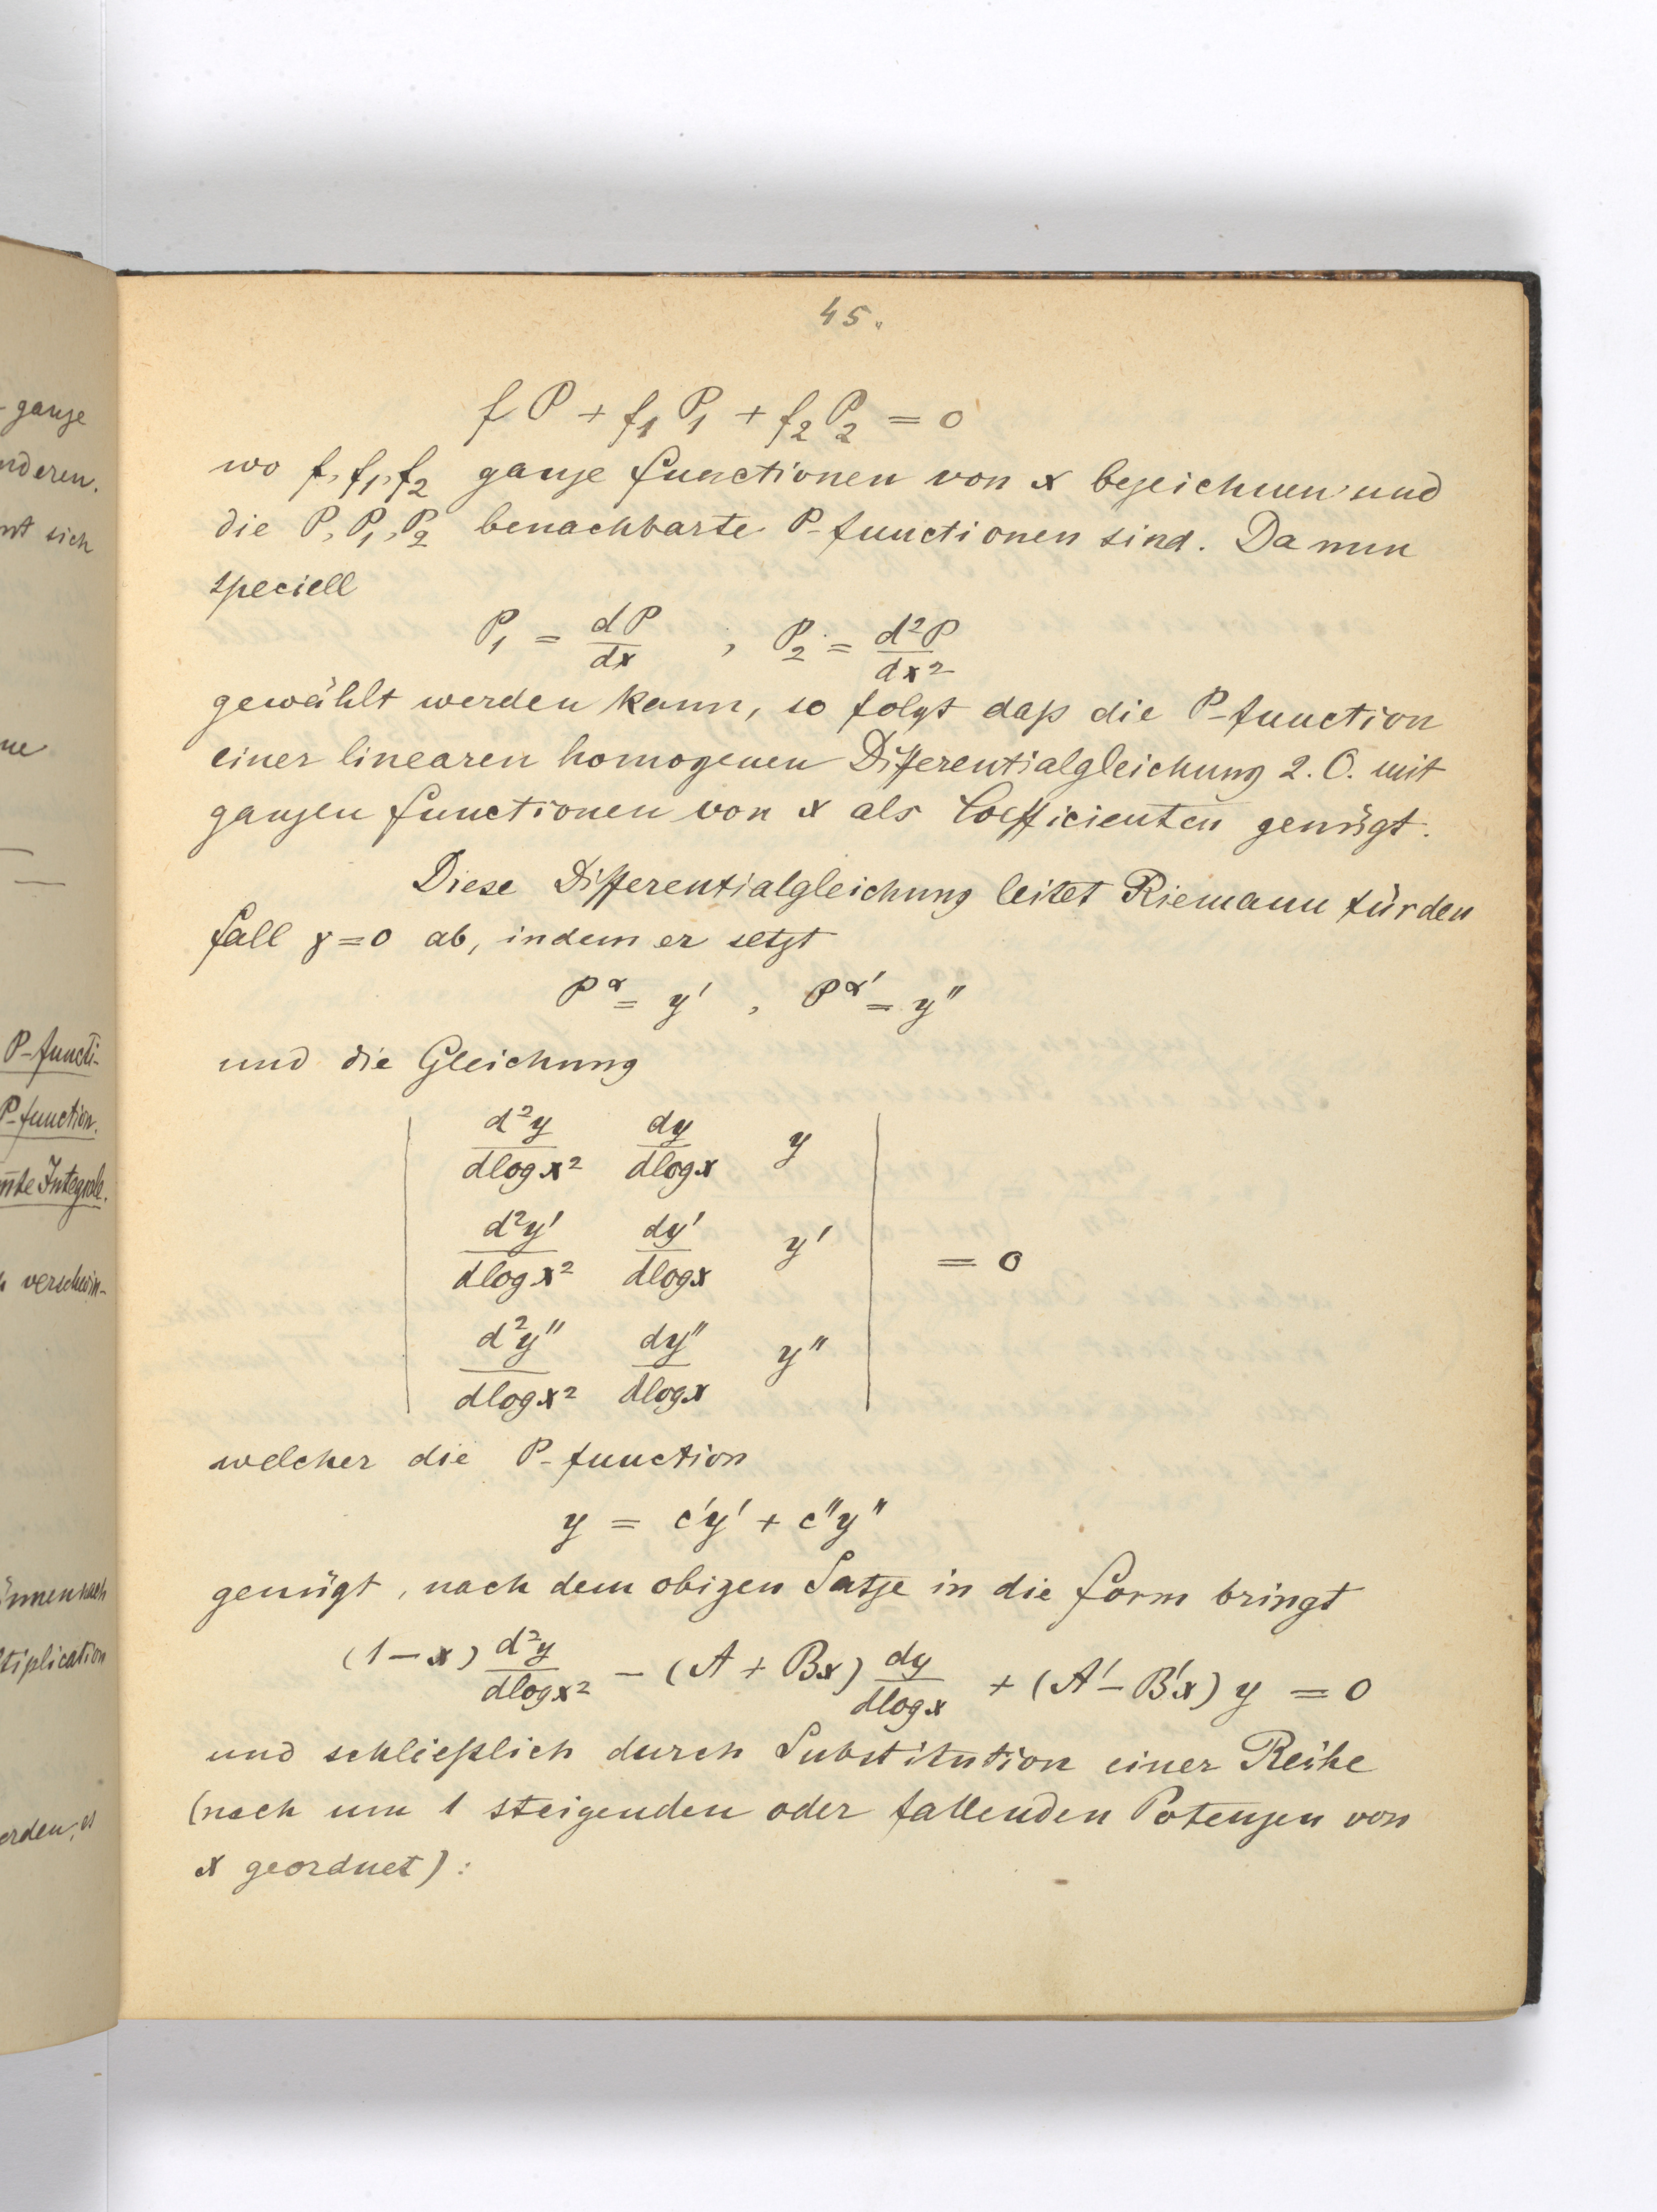 - ganze
nderen.
nt sich
P-functi-
P-function.
mte Integrale.
verschwin-
önnen nach
ltiplication
erden, es
45.
f P + f₁ P₁ + f₂ P₂ = 0
wo f, f₁, f₂ ganze Functionen von x bezeichnen und
die P, P₁, P₂ benachbarte P-functionen sind. Da nun
speciell
P₁ = dP/dx , P₂ = d²P/dx²
gewählt werden kann, so folgt daß die P-function
einer linearen homogenen Differentialgleichung 2. O. mit
ganzen Functionen von x als Coefficienten genügt.
Diese Differentialgleichung leitet Riemann für den
Fall γ=0 ab, indem er setzt
P^α = y' , P^α' = y''
und die Gleichung
d²y/dlogx² dy/dlogx y
d²y'/dlogx² dy'/dlogx y' = 0
d²y''/dlogx² dy''/dlogx y''
welcher die P-function
y = c'y' + c''y''
genügt, nach dem obigen Satze in die Form bringt
(1-x) d²y/dlogx² - (A + Bx) dy/dlogx + (A' - B'x) y = 0
und schließlich durch Substitution einer Reihe
(nach um 1 steigenden oder fallenden Potenzen von
x geordnet):